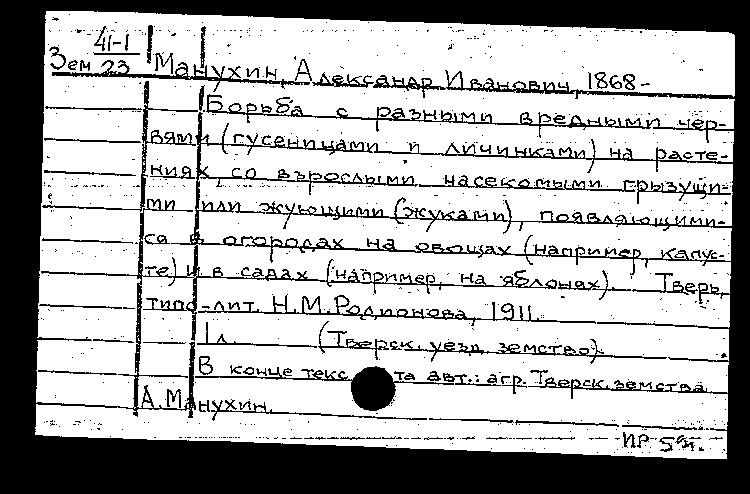 41-1
Зем 23 Манухин, Александр Иванович, 1868-
Борьба с разными вредными чер-
вями (гусеницами и личинками) на расте-
ниях, со взрослыми насекомыми грызущи-
ми или жующими (жуками), появляющими-
ся в огородах на овощах (например, капус-
те) и в садах (например, на яблонях). Тверь,
типо-лит. Н.М.Родионова, 1911.
1 л. (Тверск. уезд. земство).
В конце текста авт.: агр. Тверск. земства
А.Манухин.
ПР 59г.